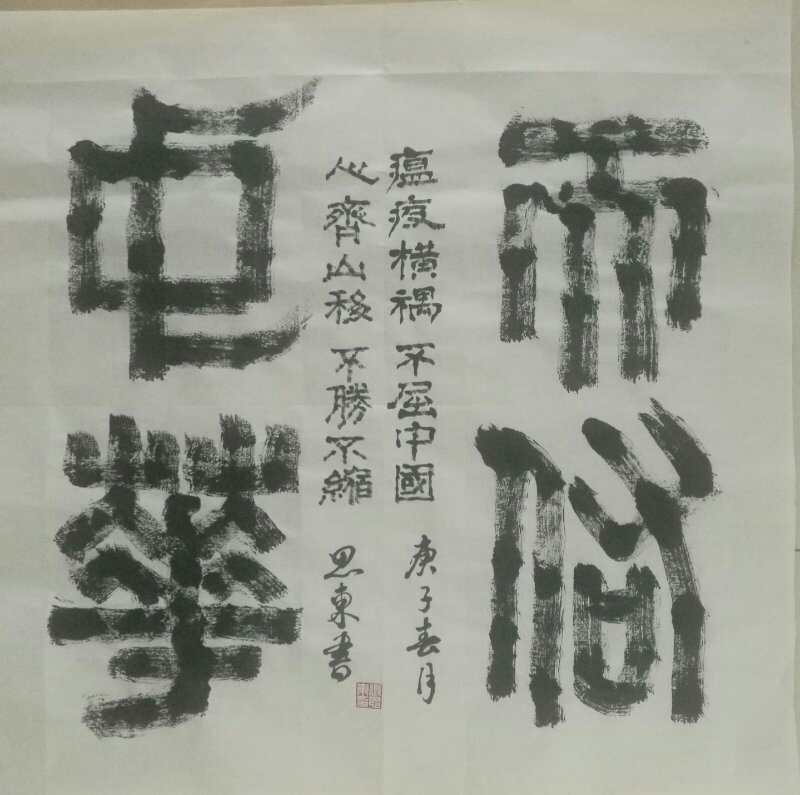 中華
瘟疫橫禍 不屈中國 庚子春月
心齊山移 不勝不縮 思東書